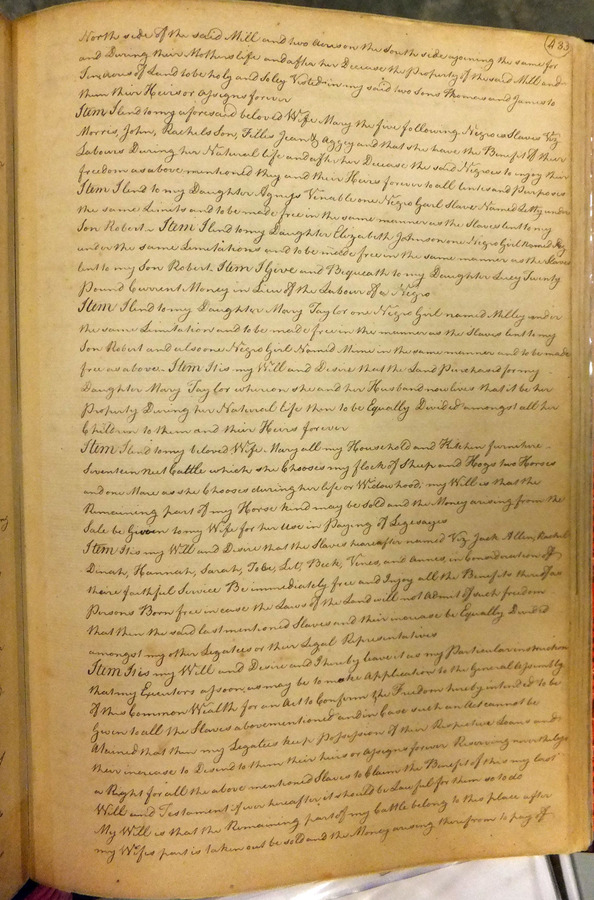 483
North side of the said Mill and two Acres on the South side ajoining the same for
and During their Mothers life and after her Decease the Property of the said Mill and
Ten Acres of Land to be holy and Soley Vested in my said two Sons Thomas and James to
them their Heirs or Assigns forever
Item I lend to my aforesaid beloved Wife Mary the five following Negroes Slaves Viz
Morris, John, Rachels Son, Fillis Jean & Aggey and that she have the Benefit of their
Labours During her Natural life and after her Decease the said Negroes to injoy their
freedom as above mentioned they and their Heirs forever to all Intents and Purposes
Item I lend to my Daughter Agness Venable one Negro Garl Slave Named Letty under
the same Limits and to be made free in the same manner as the Slaves lent to my
Son Robert - Item I lend to my Daughter Elizabeth Johnson one Negro Girl Named
under the same Limitations and to be made free in the same manner as the Slaves
lent to my Son Robert Item I Give and Bequeath to my Daughter Lucy Twenty
Pound Current Money in Lieu of the Labour of a Negro
Item I lend to my Daughter Mary Taylor one Negro Girl named Milley under
the same Limitation and to be made free in the manner as the Slaves lent to my
Son Robert and also one Negro Girl Named Mime in the same manner and to be made
free as above - Item It is my Will and Desire that the Land Purchased for my
Daughter Mary Taylor whereon she and her Husband now lives that it be her
Property During her Natural life then to be Equally Divided amongst all her
Children to them and their Heirs forever
Item I lend to my beloved Wife Mary all my Household and Kitchen furniture -
Seventeen Neet Cattle which she Chooses my flock of Sheep and Hogs two Horses
and one Mare as she Chooses during her life or Widowhood, my Will is that the
Remaining part of my Horse kind may be Sold and the Money arising from the
Sale be Given to my Wife for her use in Paying of Legesayes
Item It is my Will and Desire that the Slaves hereafter named Viz Jack Allen, Rachel
Dinah, Hannah, Sarah, Tobe, Let, Beck, Vines, and Annes, in Consideration of
theire faithful Service Be immediately free and Injoy all the Benefits thereof as
Persons Born free in case the Laws of the Land will not Admit of such freedom
that then the said last mentioned Slaves and their increase be Equally Divided
amongst my other Legatees or their Legal Representatives
Item It is my Will and Desire and I hereby leave it as my Particular instruction
that my Executors as soon as may be to make Application to the General Assembly
of this Common Wealth for an Act to Confirm the Freedom hereby intended to be
Given to all the Slaves above mentioned and in Case such an Act cannot be
Atained that then my Legatees keep Possession of their Respective Loans and
their increase to Desend to them their heirs or Assigns forever Reserving nevertheless
a Right for all the above mentioned Slaves to Claim the Benefit of this my last
Will and Testament if ever hereafter it should be Lawful for them so to do
My Will is that the Remaining part of my Cattle belong to this place after
my Wifes part is taken out be sold and the Money arising therefrom to pay of